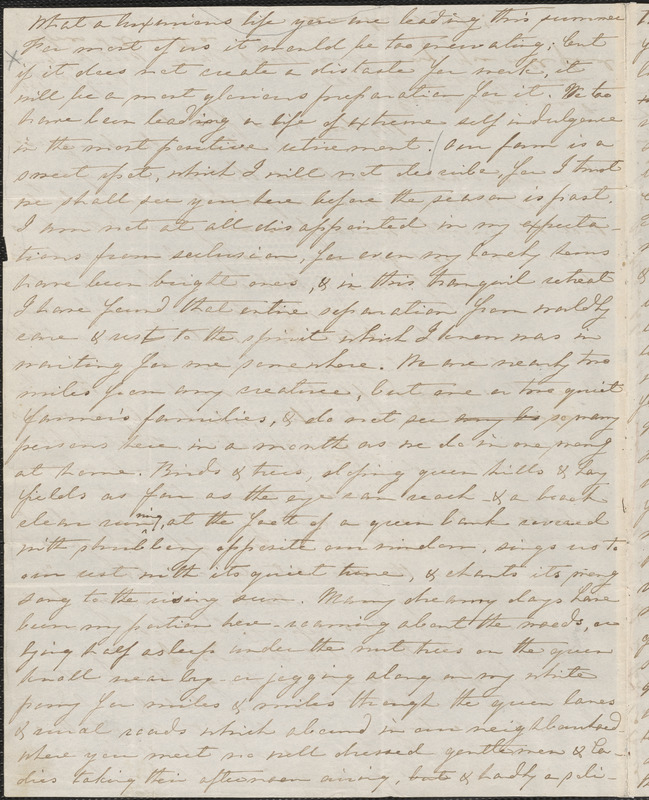 What a luxurious life you are leading this summer
For most of us it would be too enervating; but
if it does not create a distaste for work, it
will be a most glorious preparation for it. We too
have been leading a life of extreme self indulgence
in the most positive retirement. Our farm is a
sweet spot, which I will not describe for I trust
we shall see you here before the season is past.
I am not at all disappointed in my expecta-
tions from seclusion, for even my lonely hours
have been bright ones, & in this tranquil retreat
I have found that entire separation from worldly
care & rest to the spirit which I knew was in
waiting for me somewhere. We are nearly two
miles from any creature, but one or two quiet
farmer's families, & do not see so many
persons here in a month as we do in one morng
at home. Birds & trees, sloping green hills & hay
fields as far as the eye can reach - & a brook
clear running, at the foot of a green bank covered
with shrubbery opposite our window, sings us to
our rest with its quiet tune, & chants its morng
song to the rising sun. Many dreamy days have
been my portion here - roaming about the meads, or
lying half asleep under the nut trees on the green
knoll near by - or jogging along on my white
pony for miles & miles through the green lanes
& rural roads which abound in our neighbourhood
where you meet no well dressed gentlemen & la-
dies taking their afternoon airing, but & hardly a soli-